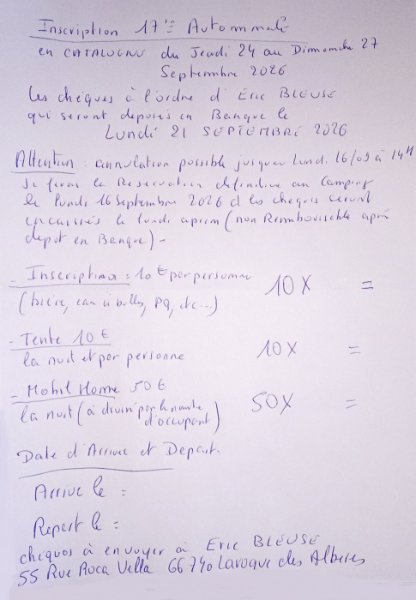 Inscription 17ème Automnale
en CATALOGNE du Jeudi 24 au Dimanche 27
Septembre 2026
Les chèques à l'ordre d'Eric BLEUSE
qui seront deposés en Banque le
LUNDI 21 SEPTEMBRE 2026
Attention : annulation possible jusqu'au Lundi 16/09 à 14H
Je ferai la Reservation définitive au Camping
le lundi 16 septembre 2026 et les cheques seront
encaissés le lundi aprem (non Remboursable apres
depot en Banque) -
- Inscription : 10 € par personne 10 X =
(bière, eau à bulles, PQ, etc...)
- Tente 10 €
la nuit et par personne 10 X =
- Mobil Home 50 €
la nuit (à diviser par le nombre 50 X =
d'occupant)
Date d'Arrivée et Depart.
Arrive le :
Repart le :
cheques à envoyer à Eric BLEUSE
55 Rue Roca Vella 66740 Laroque des Albères